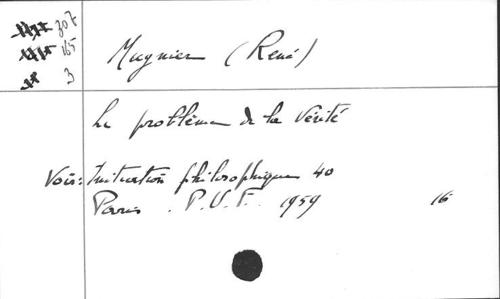 307
165
3
Mugnier (René)
Le problème de la Vérité
Voir: Initiation philosophique 40
Paris. P.U.F. 1959 16